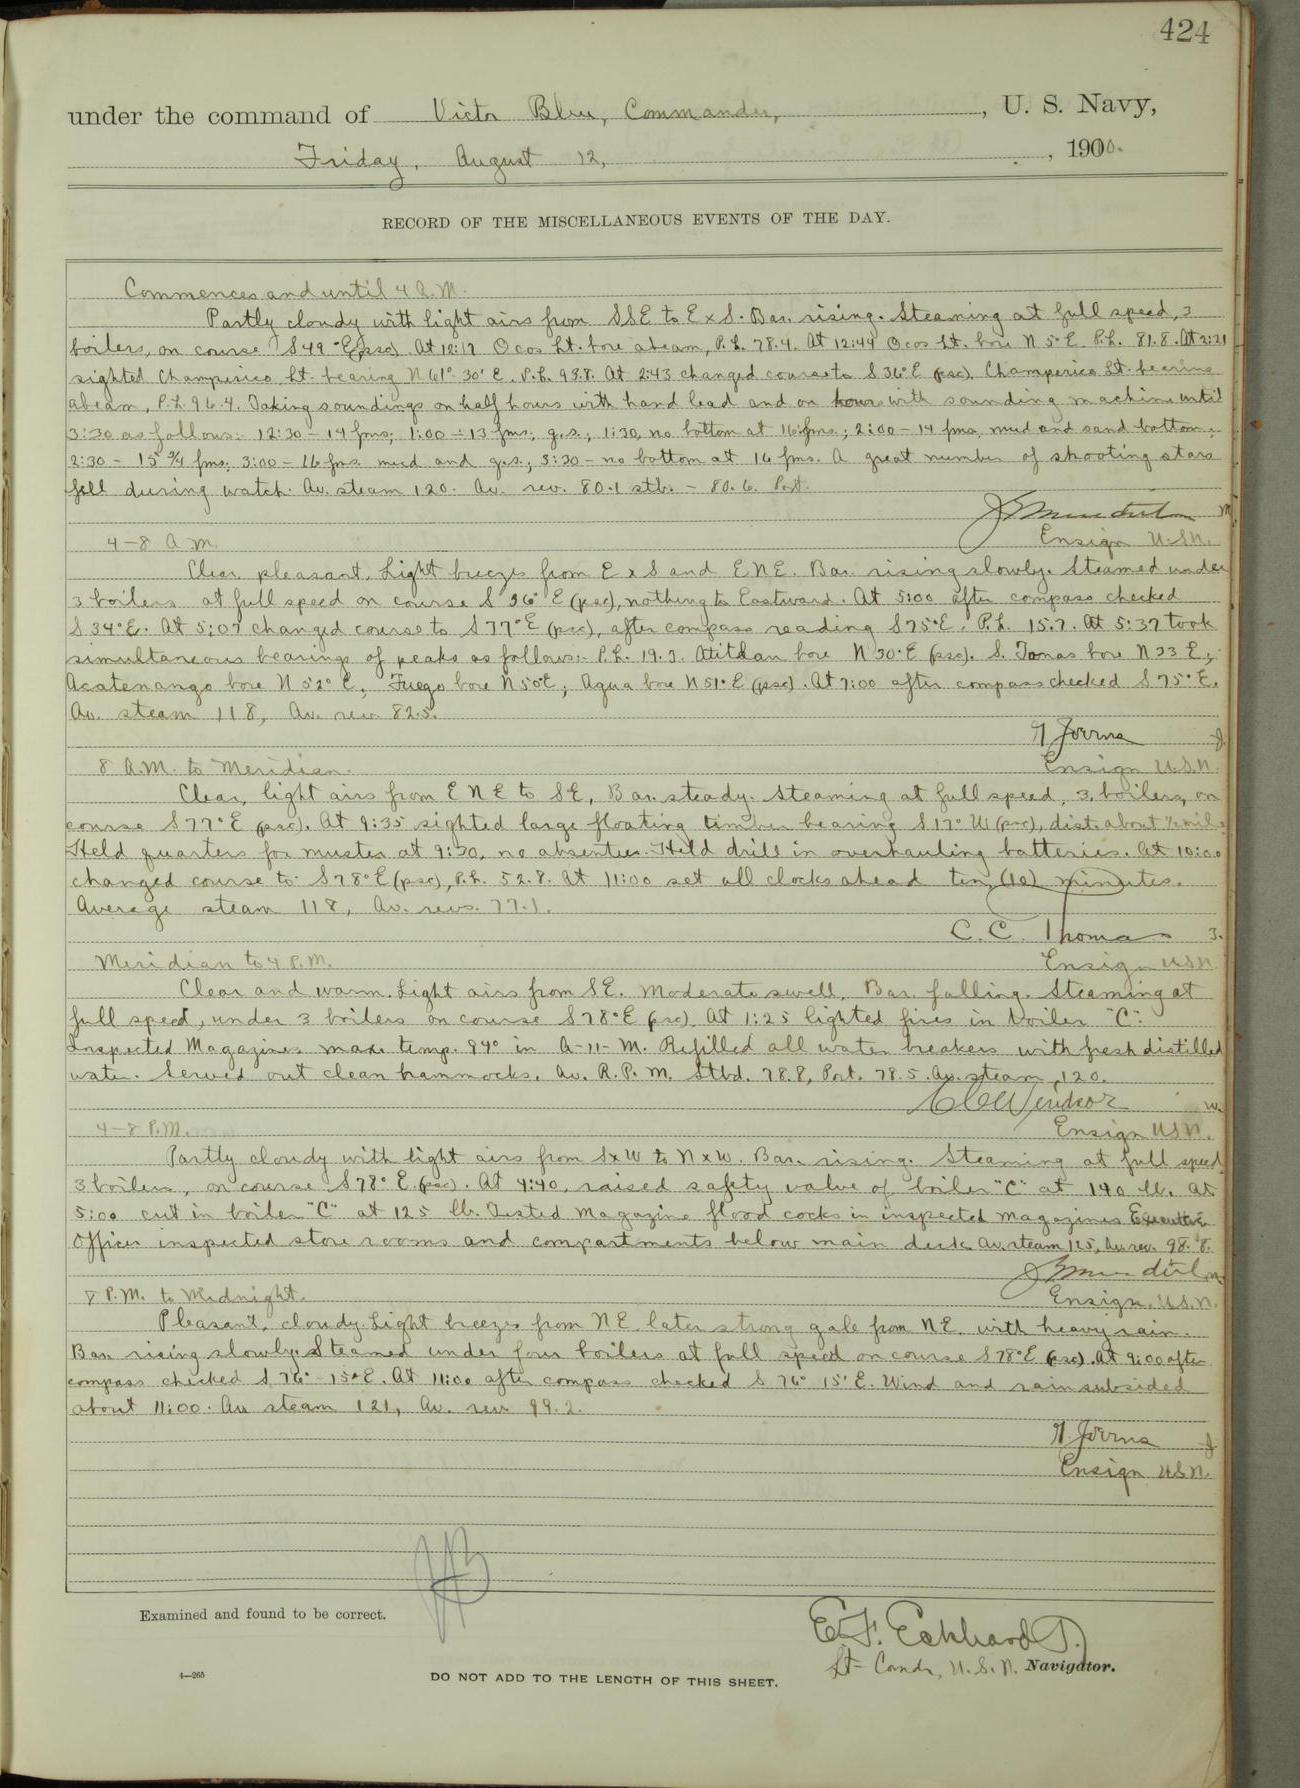 424
under the command of Victor Blue, Commander, , U. S. Navy,
Friday, August 12, , 1900.
RECORD OF THE MISCELLANEOUS EVENTS OF THE DAY.
Commences and until 4 A.M.
Partly cloudy with light airs from SSE to E x S. Bar. rising. Steaming at full speed, 3
boilers, on course S 49° E (psc). At 12:17 Ocos Lt. bore abeam, P.L. 78.4. At 12:49 Ocos Lt. bore N 5° E. P.L. 81.8. At 2:21
sighted Champerico Lt. bearing N 61° 30' E. P.L. 93.8. At 2:43 changed course to S 36° E (psc). Champerico Lt. bearing
abeam, P.L. 96.4. Taking soundings on half hours with hand lead and on hours with sounding machine until
3:30 as follows:- 12:30 - 14 fms; 1:00 - 13 fms, g.s.; 1:30, no bottom at 16 fms.; 2:00 - 14 fms, mud and sand bottom;
2:30 - 15 3/4 fms; 3:00 - 16 fms. mud and gs.; 3:30 - no bottom at 16 fms. A great number of shooting stars
fell during watch. Av. steam 120. Av. rev. 80.1 stb. - 80.6. Port.
M
4-8 A.M. Ensign U.S.N.
Clear, pleasant. Light breezes from E x S and ENE. Bar. rising slowly. Steamed under
3 boilers at full speed on course S 36° E (psc), nothing to Eastward. At 5:00 after compass checked
S 34° E. At 5:07 changed course to S 77° E (psc), after compass reading S 75° E. P.L. 15.7. At 5:37 took
simultaneous bearings of peaks as follows:- P.L. 19.3. Atitlan bore N 30° E (psc). S. Tomas bore N 33 E;
Acatenango bore N 52° E; Fuego bore N 50 E; Agua bore N 51° E (psc). At 7:00 after compass checked S 75° E.
Av. steam 118, Av. rev. 82.5.
J.
8 A.M. to Meridian. Ensign U.S.N.
Clear, light airs from ENE to SE, Bar. steady. Steaming at full speed, 3 boilers, on
course S 77° E (psc). At 9:35 sighted large floating timber bearing S 17° W (psc), dist. about ½ mile.
Held quarters for muster at 9:30, no absentees. Held drill in overhauling batteries. At 10:00
changed course to S 78° E (psc), P.L. 52.8. At 11:00 set all clocks ahead ten (10) minutes.
Average steam 118, Av. revs. 77.1.
C. C. Thomas 3.
Meridian to 4 P.M. Ensign USN
Clear and warm. Light airs from SE. Moderate swell. Bar. falling. Steaming at
full speed, under 3 boilers on course S 78° E (psc). At 1:25 lighted fires in boiler "C".
Inspected Magazines max. temp. 94° in A-11-M. Refilled all water breakers with fresh distilled
water. Served out clean hammocks. Av. R.P.M. Stbd. 78.8, Port. 78.5. Av. steam, 120.
Windsor w.
4-8 P.M. Ensign USN.
Partly cloudy with light airs from S x W to N x W. Bar. rising. Steaming at full speed,
3 boilers, on course S 78° E (psc). At 4:40, raised safety valve of boiler "C" at 140 lb. At
5:00 cut in boiler "C" at 125 lb. Tested magazine flood cocks in inspected magazines. Executive
Officer inspected store rooms and compartments below main deck. Av. steam 125, Av. rev. 98.8.
8 P.M. to Midnight. Ensign, U.S.N.
Pleasant, cloudy. Light breezes from NE. later strong gale from NE. with heavy rain.
Bar. rising slowly. Steamed under four boilers at full speed on course S 78° E (psc). At 9:00 after
compass checked S 76° - 15' E. At 11:00 after compass checked S 76° 15' E. Wind and rain subsided
about 11:00. Av. steam 121, Av. rev. 99.2.
J
Ensign USN.
Examined and found to be correct.
E. F. Eckhardt
Lt- Comdr, U.S.N. Navigator.
4-265
DO NOT ADD TO THE LENGTH OF THIS SHEET.